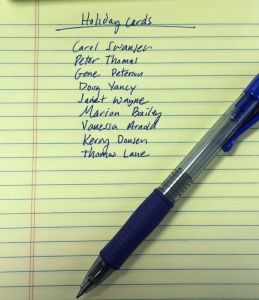 Holiday Cards
Carol Swanson
Peter Thomas
Gene Peterson
Doug Yancy
Janet Wayne
Marion Bailey
Vanessa Arnold
Kerry Dansen
Thomas Lane